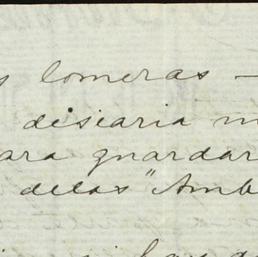 s lomeras —
disiaria m
ara guardar
delas "Amb